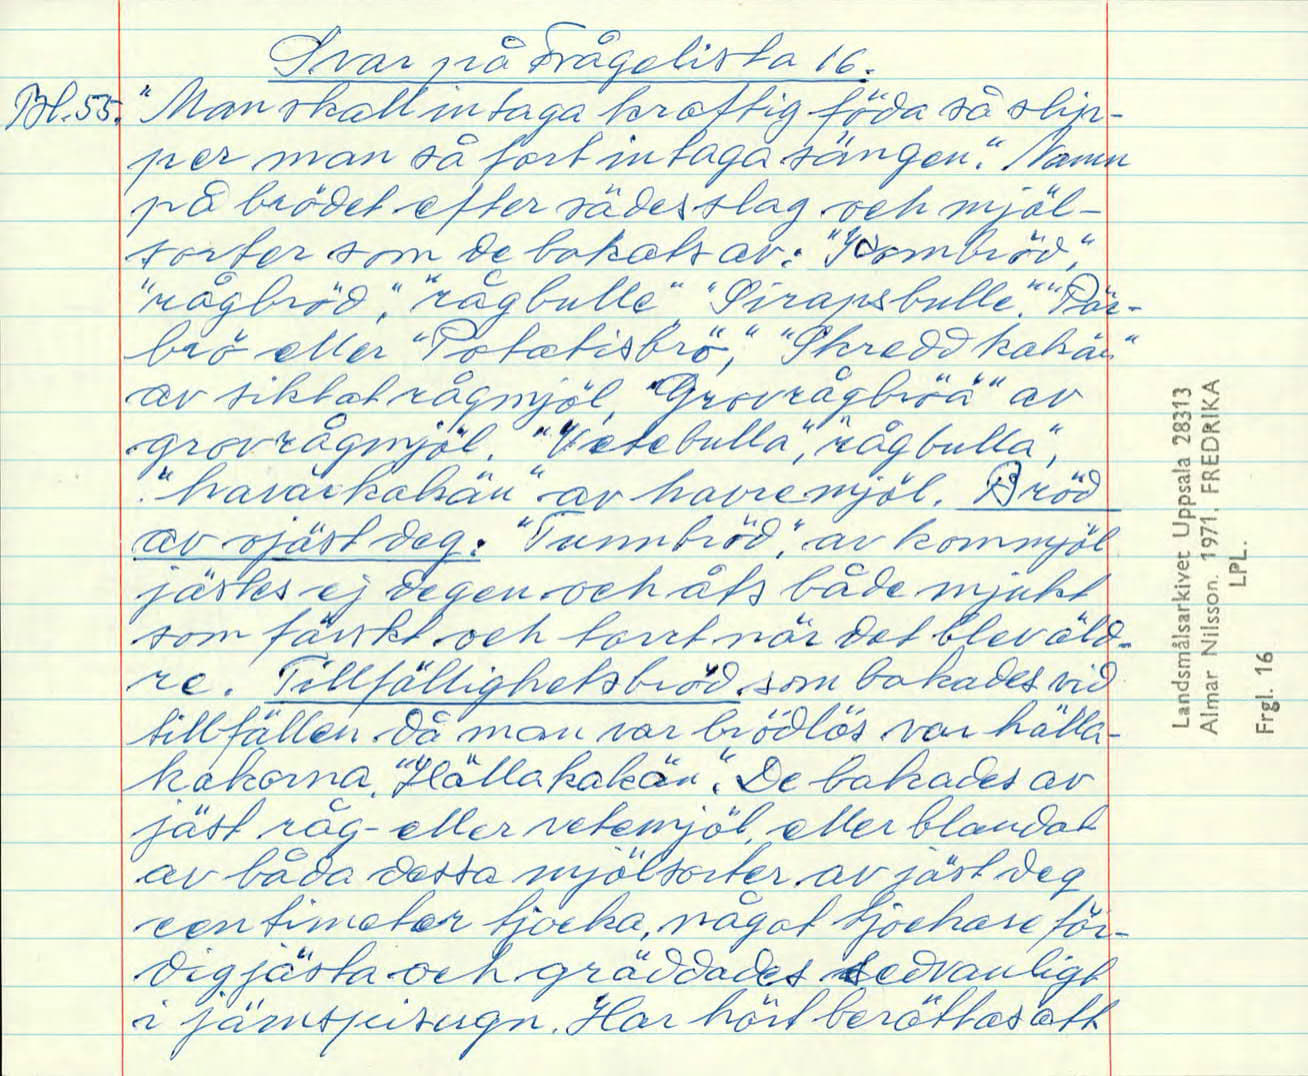 Svar på Frågelista 16.
Bl. 55. "Man skall intaga kraftig föda så slip-
per man så fort intaga sängen." Namn
på brödet efter sädesslag och mjöl-
sorter som de bakats av: "Kornbröd,"
"rågbröd," "rågbulle" "Sirapsbulle." "Pär-
brö eller "Potatisbrö," "Skreddkakän"
av siktat rågmjöl, "Grovrågbröä" av
grovrågmjöl. "Vetebulla", "rågbulla",
"haväckakän" av havremjöl. Bröd
av ojäst deg: "Tunnbröd," av kornmjöl
jästes ej degen och åts både mjukt
som färskt och torrt när det blev äld-
re. Tillfällighetsbröd som bakades vid
tillfällen då man var brödlös var hälla-
kakorna, "Hällakakän". De bakades av
jäst råg- eller vetemjöl, eller blandat
av båda dessa mjölsorter av jäst deg
centimeter tjocka, något tjockare fär-
digjästa och gräddades sedvanligt
i järnspisugn. Har hört berättas att
Landsmålsarkivet Uppsala 28313
Almar Nilsson. 1971. FREDRIKA
LPL.
Frgl. 16